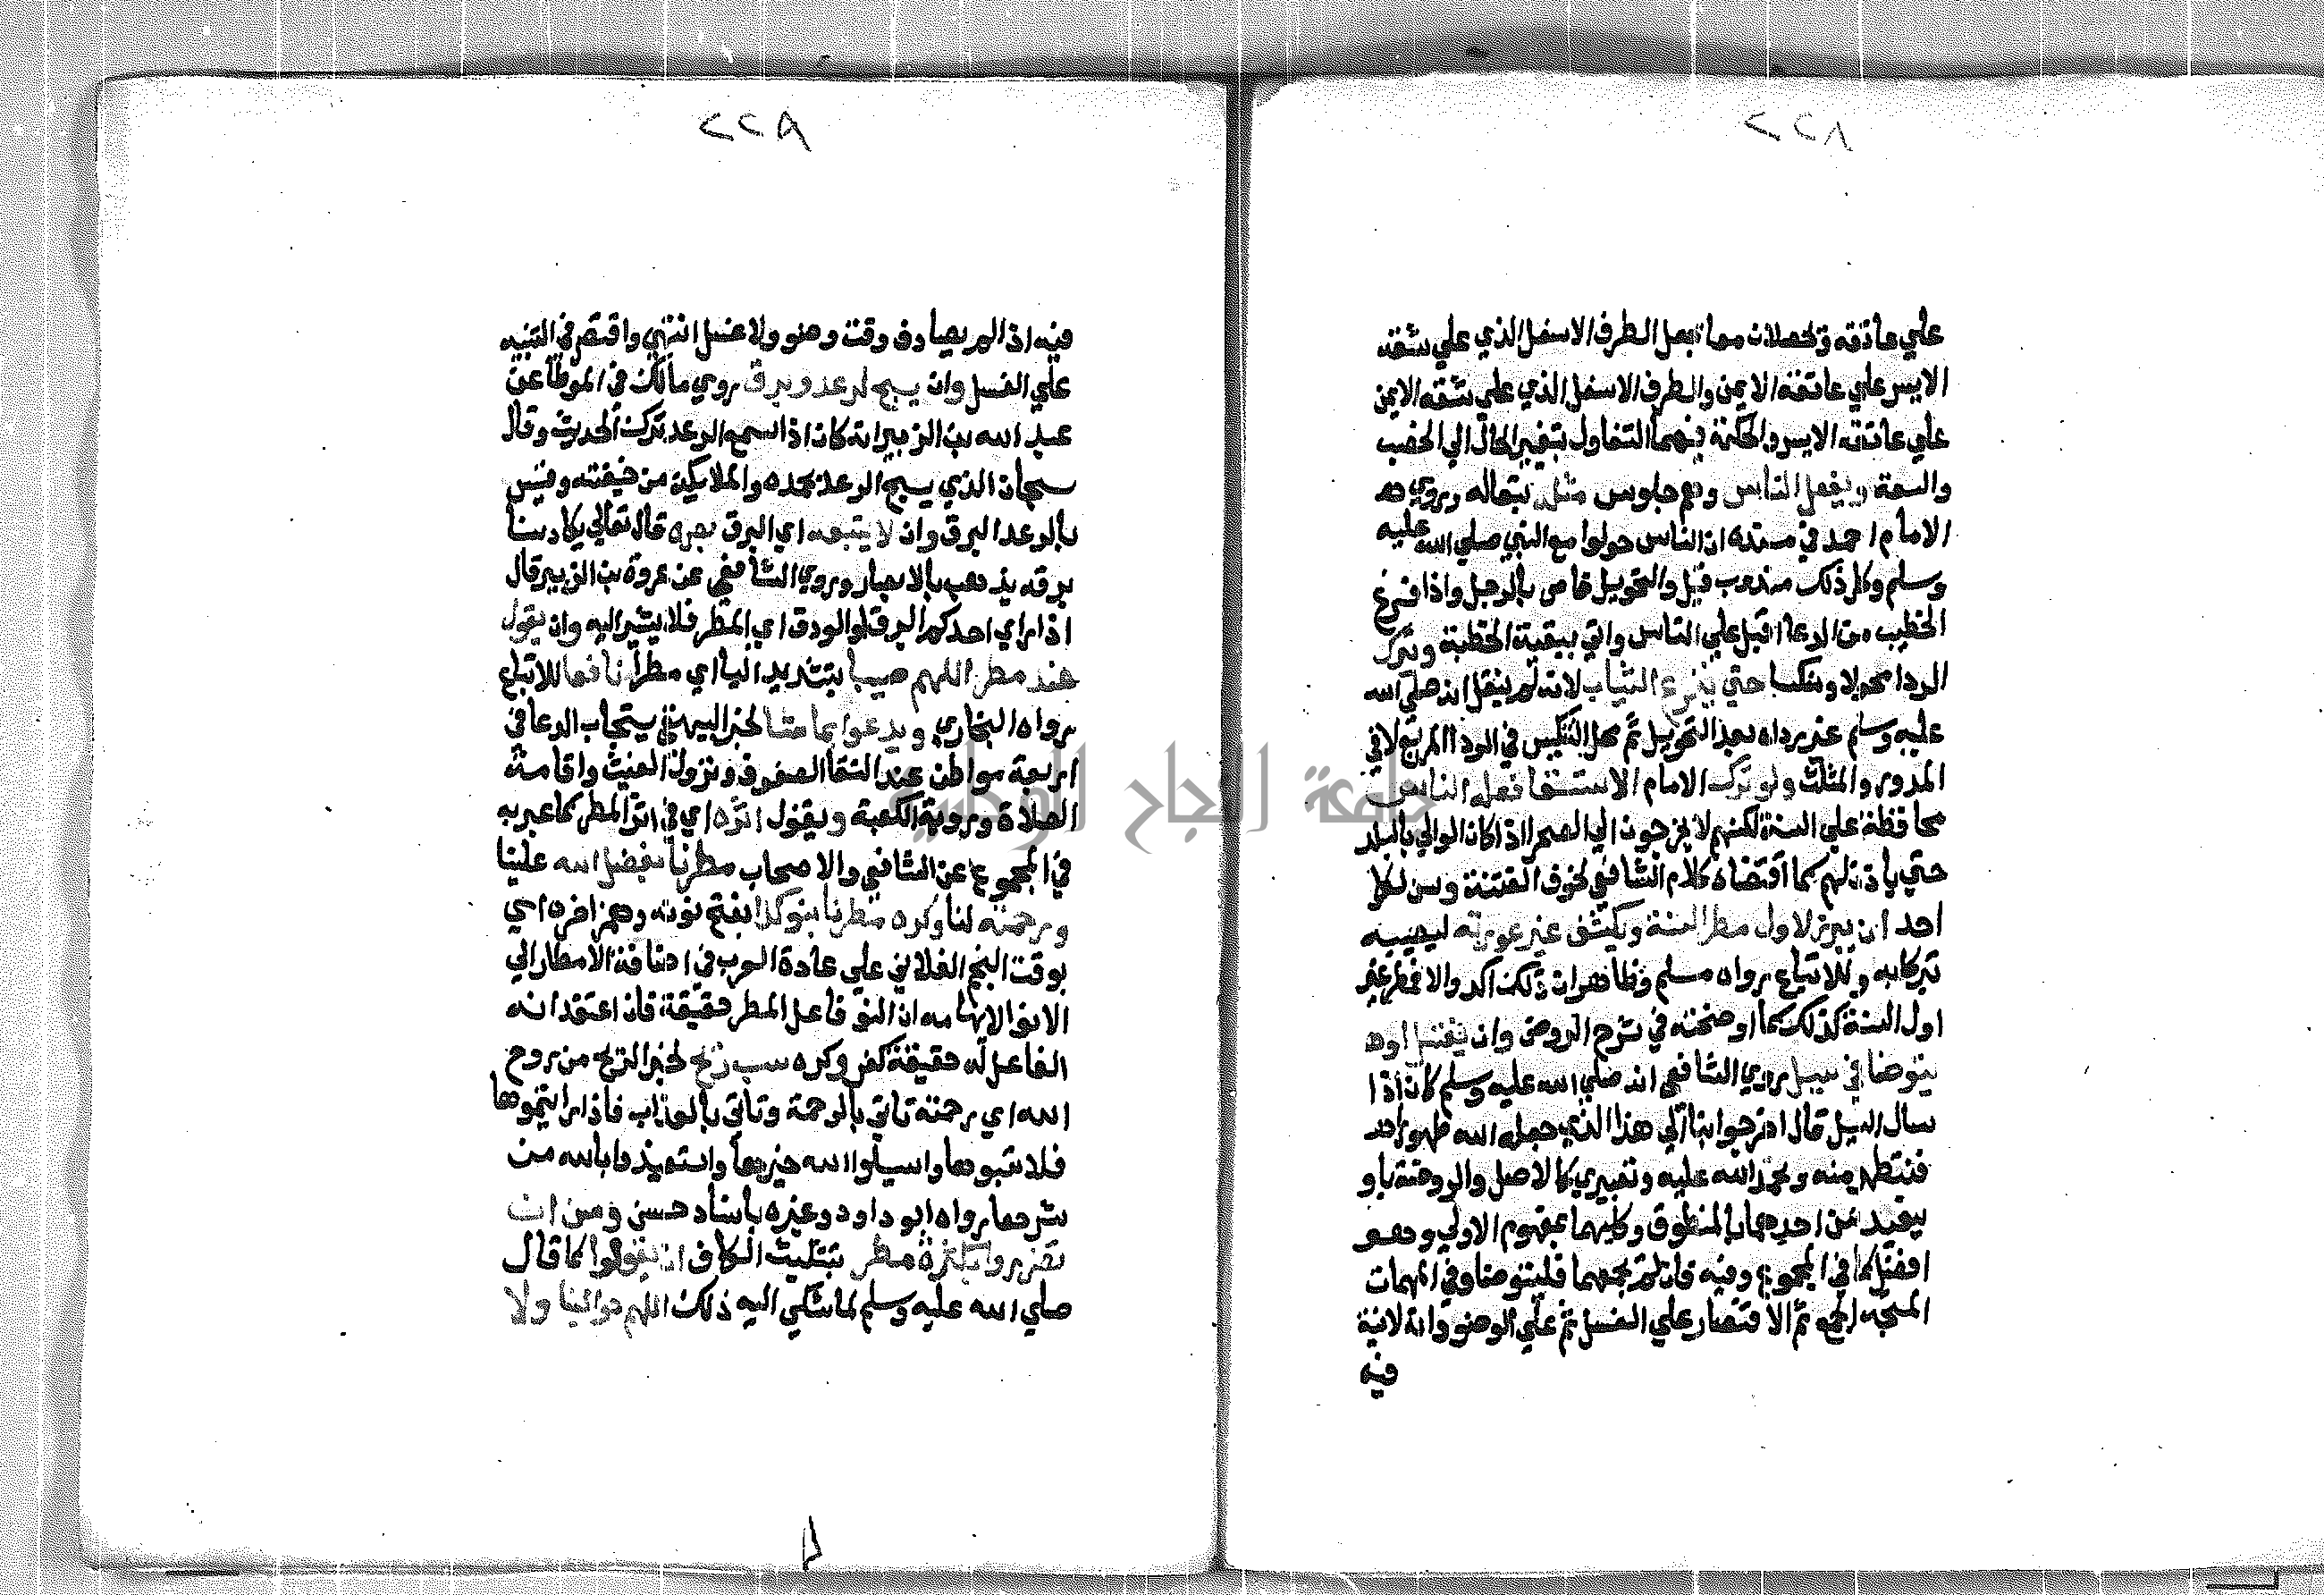 ٢٢٨
علي عاتقه وتحصلان معا بجعل الطرف الاسفل الذي علي شقه
الايسر علي عاتقه الايمن والطرف الاسفل الذي علي شقه الايمن
علي عاتقه الايسر والحكمة فيهما التفاول بتغير الحال الي الخصب
والسعة ويفعل الناس وهم جلوس مثله تبعا له وروي
الامام احمد في مسنده ان الناس حولوا مع النبي صلي الله عليه
وسلم وكل ذلك مندوب قيل والتحويل خاص بالرجل واذا فرغ
الخطيب من الدعا اقبل علي الناس واتي ببقية الخطبة وترك
الردا محولا ومنكسا حتي ينزع الثياب لانه لم ينقل انه صلي الله
عليه وسلم غير رداه بعد التحويل ثم محل التنكيس في الردا المربع لا في
المدور والمثلث ولو ترك الامام الاستسقا فعله الناس
محافظة علي السنة لكنهم لا يخرجون الي الصحرا اذا كان الوالي بالبلد
حتي ياذن لهم كما اقتضاه كلام الشافعي لخوف الفتنة وسن لكل
احد ان يبرز لاول مطر السنة ويكشف غير عورته ليصيبه
تبركا به وللاتباع رواه مسلم وظاهر ان ذلك اكد والا فمطر غير
اول السنة كذلك كما اوضحته في شرح الروض وان يغتسل او
يتوضا في سيل روي الشافعي انه صلي الله عليه وسلم كان اذا
سال السيل قال اخرجوا بنا الي هذا الذي جعله الله طهورا
فنتطهر منه ونحمد الله عليه وتعبيري كالاصل والروضة باو
يفيد سن احدهما بالمنطوق وكليهما بمفهوم الاولي وهو
افضل كما في المجموع وفيه فان لم يجمعهما فليتوضا وفي المهمات
المتجه الجمع ثم الاقتصار علي الغسل ثم علي الوضو وانه لا نية
فيه
٢٢٩
فيه اذا لم يصادف وقت وضو ولا غسل انتهي واقتصر في التنبيه
علي الغسل وان يسبح لرعد وبرق روي مالك في الموطا عن
عبد الله بن الزبير انه كان اذا سمع الرعد ترك الحديث وقال
سبحان الذي يسبح الرعد بحمده والملايكة من خيفته وقيس
بالرعد البرق وان لا يتبعه اي البرق بصره قال تعالي يكاد سنا
برقه يذهب بالابصار وروي الشافعي عن عروة بن الزبير قال
اذا راي احدكم البرق او الودق اي المطر فلا يشير اليه وان يقول
عند مطر اللهم صيبا بتشديد اليا اي مطرا نافعا للاتباع
رواه البخاري ويدعوا بما شا لخبر البيهقي يستجاب الدعا في
اربعة مواطن عند التقا الصفوف ونزول الغيث واقامة
الصلاة وروية الكعبة ويقول اثره اي في اثر المطر كما عبر به
في المجموع عن الشافعي والاصحاب مطرنا بفضل الله علينا
ورحمته لنا وكره مطرنا بنو كذا بفتح نونه وهمز اخره اي
بوقت النجم الفلاني علي عادة العرب في اضافة الامطار الي
الانو الايهامه ان النو فاعل المطر حقيقة فان اعتقد انه
الفاعل له حقيقة كفر وكره سب ريح لخبر الريح من روح
الله اي رحمته تاتي بالرحمة وتاتي بالعذاب فاذا رايتموها
فلا تسبوها واسيلوا الله خيرها واستعيذوا بالله من
شرها رواه ابو داود وغيره باسناد حسن وسن ان
تضرروا بكثرة مطر بتثليث الكاف ان يقولوا كما قال
صلي الله عليه وسلم لما شكي اليه ذلك اللهم حوالينا ولا
جامعة النجاح الوطنية